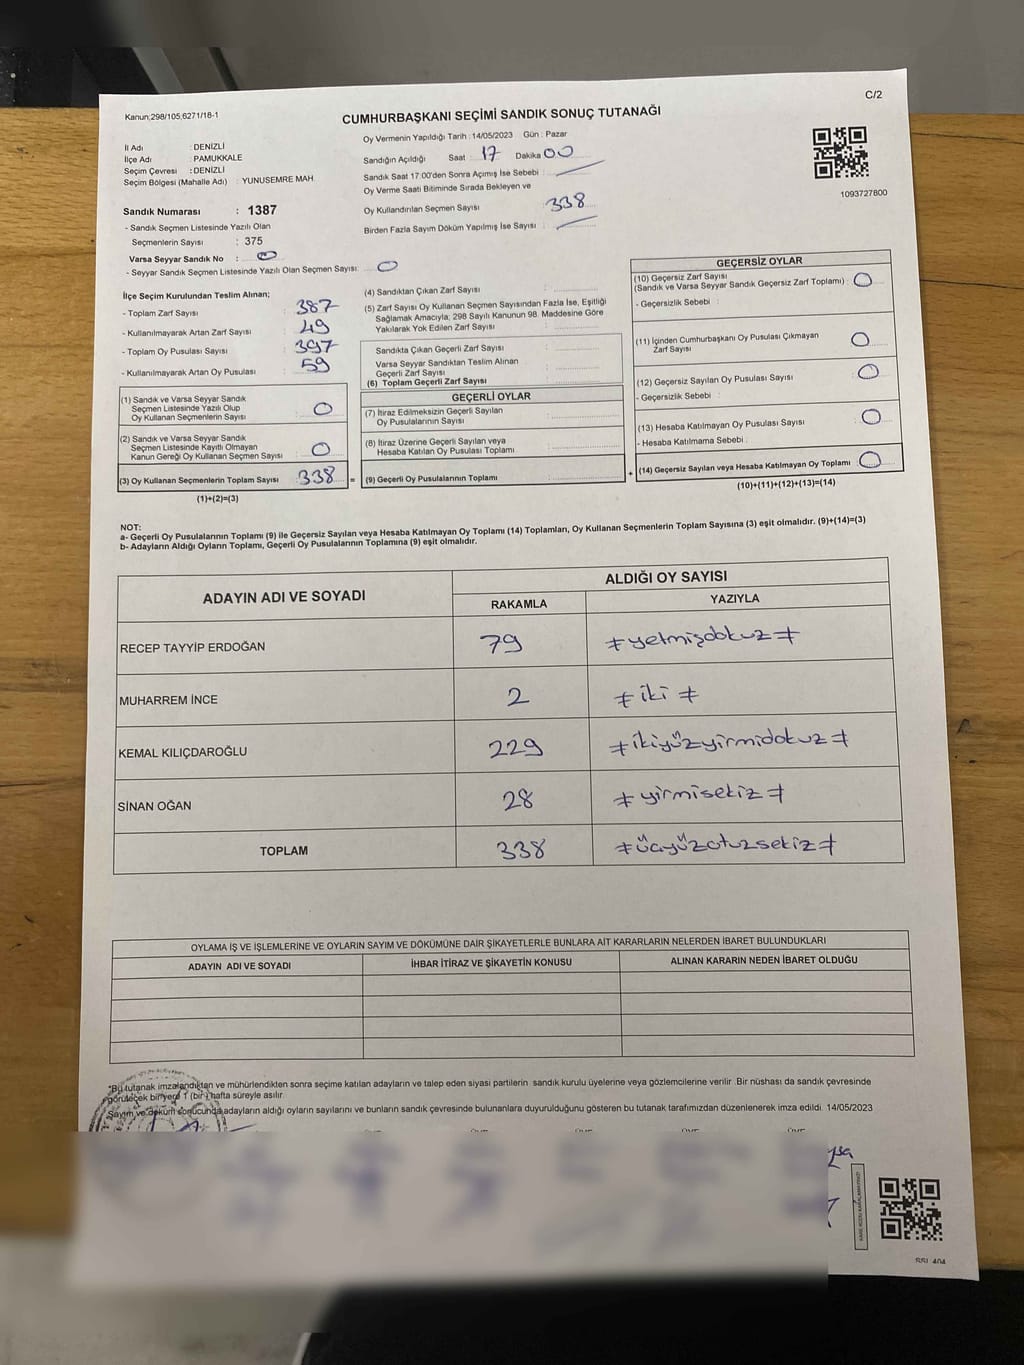 Kanun;298/105,6271/18-1
C/2
CUMHURBAŞKANI SEÇİMİ SANDIK SONUÇ TUTANAĞI
İl Adı : DENİZLİ
İlçe Adı : PAMUKKALE
Seçim Çevresi : DENİZLİ
Seçim Bölgesi (Mahalle Adı) : YUNUSEMRE MAH.
Sandık Numarası : 1387
- Sandık Seçmen Listesinde Yazılı Olan
Seçmenlerin Sayısı : 375
Varsa Seyyar Sandık No : 0
- Seyyar Sandık Seçmen Listesinde Yazılı Olan Seçmen Sayısı: 0
Oy Vermenin Yapıldığı Tarih : 14/05/2023 Gün : Pazar
Sandığın Açıldığı Saat : 17 Dakika 00
Sandık Saat 17:00'den Sonra Açımış İse Sebebi :
Oy Verme Saati Bitiminde Sırada Bekleyen ve
Oy Kullandırılan Seçmen Sayısı : 338
Birden Fazla Sayım Döküm Yapılmış İse Sayısı :
1093727800
İlçe Seçim Kurulundan Teslim Alınan;
- Toplam Zarf Sayısı : 387
- Kullanılmayarak Artan Zarf Sayısı : 49
- Toplam Oy Pusulası Sayısı : 397
- Kullanılmayarak Artan Oy Pusulası : 59
(1) Sandık ve Varsa Seyyar Sandık
Seçmen Listesinde Yazılı Olup
Oy Kullanan Seçmenlerin Sayısı : 0
(2) Sandık ve Varsa Seyyar Sandık
Seçmen Listesinde Kayıtlı Olmayan
Kanun Gereği Oy Kullanan Seçmen Sayısı : 0
(3) Oy Kullanan Seçmenlerin Toplam Sayısı : 338 =
(1)+(2)=(3)
(4) Sandıktan Çıkan Zarf Sayısı :
(5) Zarf Sayısı Oy Kullanan Seçmen Sayısından Fazla İse, Eşitliği
Sağlamak Amacıyla; 298 Sayılı Kanunun 98. Maddesine Göre
Yakılarak Yok Edilen Zarf Sayısı :
Sandıkta Çıkan Geçerli Zarf Sayısı :
Varsa Seyyar Sandıktan Teslim Alınan
Geçerli Zarf Sayısı :
(6) Toplam Geçerli Zarf Sayısı :
GEÇERLİ OYLAR
(7) İtiraz Edilmeksizin Geçerli Sayılan
Oy Pusulalarının Sayısı :
(8) İtiraz Üzerine Geçerli Sayılan veya
Hesaba Katılan Oy Pusulası Toplamı :
(9) Geçerli Oy Pusulalarının Toplamı : +
GEÇERSİZ OYLAR
(10) Geçersiz Zarf Sayısı
(Sandık ve Varsa Seyyar Sandık Geçersiz Zarf Toplamı) : 0
- Geçersizlik Sebebi :
(11) İçinden Cumhurbaşkanı Oy Pusulası Çıkmayan
Zarf Sayısı : 0
(12) Geçersiz Sayılan Oy Pusulası Sayısı : 0
- Geçersizlik Sebebi :
(13) Hesaba Katılmayan Oy Pusulası Sayısı : 0
- Hesaba Katılmama Sebebi :
(14) Geçersiz Sayılan veya Hesaba Katılmayan Oy Toplamı : 0
(10)+(11)+(12)+(13)=(14)
NOT:
a- Geçerli Oy Pusulalarının Toplamı (9) ile Geçersiz Sayılan veya Hesaba Katılmayan Oy Toplamı (14) Toplamları, Oy Kullanan Seçmenlerin Toplam Sayısına (3) eşit olmalıdır. (9)+(14)=(3)
b- Adayların Aldığı Oyların Toplamı, Geçerli Oy Pusulalarının Toplamına (9) eşit olmalıdır.
ADAYIN ADI VE SOYADI
ALDIĞI OY SAYISI
RAKAMLA YAZIYLA
RECEP TAYYİP ERDOĞAN 79 ≠yetmişdokuz≠
MUHARREM İNCE 2 ≠iki≠
KEMAL KILIÇDAROĞLU 229 ≠ikiyüzyirmidokuz≠
SİNAN OĞAN 28 ≠yirmisekiz≠
TOPLAM 338 ≠üçyüzotuzsekiz≠
OYLAMA İŞ VE İŞLEMLERİNE VE OYLARIN SAYIM VE DÖKÜMÜNE DAİR ŞİKAYETLERLE BUNLARA AİT KARARLARIN NELERDEN İBARET BULUNDUKLARI
ADAYIN ADI VE SOYADI İHBAR İTİRAZ VE ŞİKAYETİN KONUSU ALINAN KARARIN NEDEN İBARET OLDUĞU
*Bu tutanak imzalandıktan ve mühürlendikten sonra seçime katılan adayların ve talep eden siyasi partilerin sandık kurulu üyelerine veya gözlemcilerine verilir. Bir nüshası da sandık çevresinde
görülecek bir yere 1 (bir) hafta süreyle asılır.
Sayım ve döküm sonucunda adayların aldığı oyların sayılarını ve bunların sandık çevresinde bulunanlara duyurulduğunu gösteren bu tutanak tarafımızdan düzenlenerek imza edildi. 14/05/2023